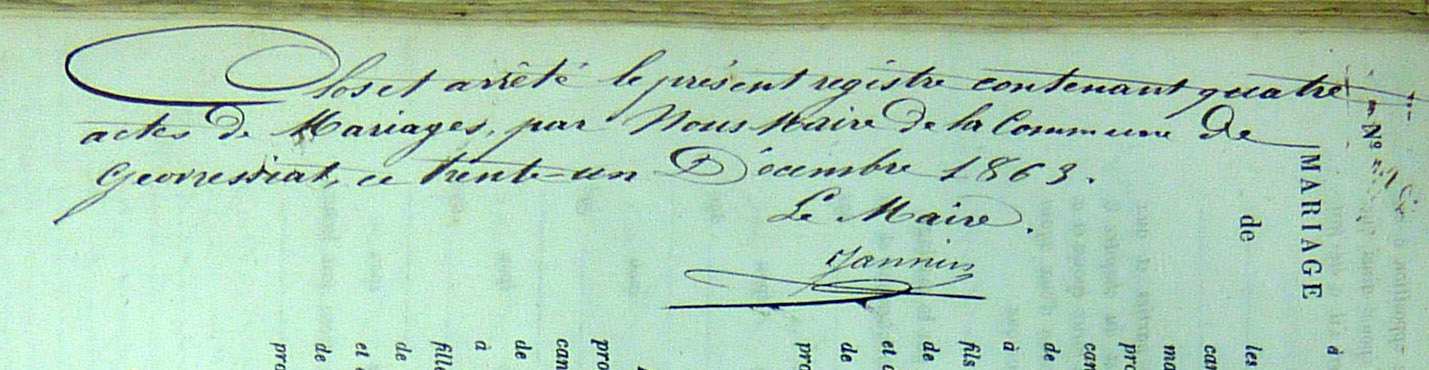 Clos et arrêté le présent registre contenant quatre
actes de Mariages, par Nous Maire de la Commune de
Geovressiat, ce trente-un Décembre 1863.
Le Maire.
Jannin
MARIAGE
de
Nº
à
les
can
ma
pro
can
de
à
fils
de
et d
de
pro
pro
can
de
à
fille
de
et
de
pro